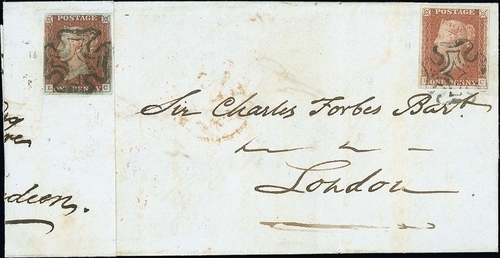 POSTAGE
ONE PENNY
L C
POSTAGE
ONE PENNY
Sir Charles Forbes Bart
London